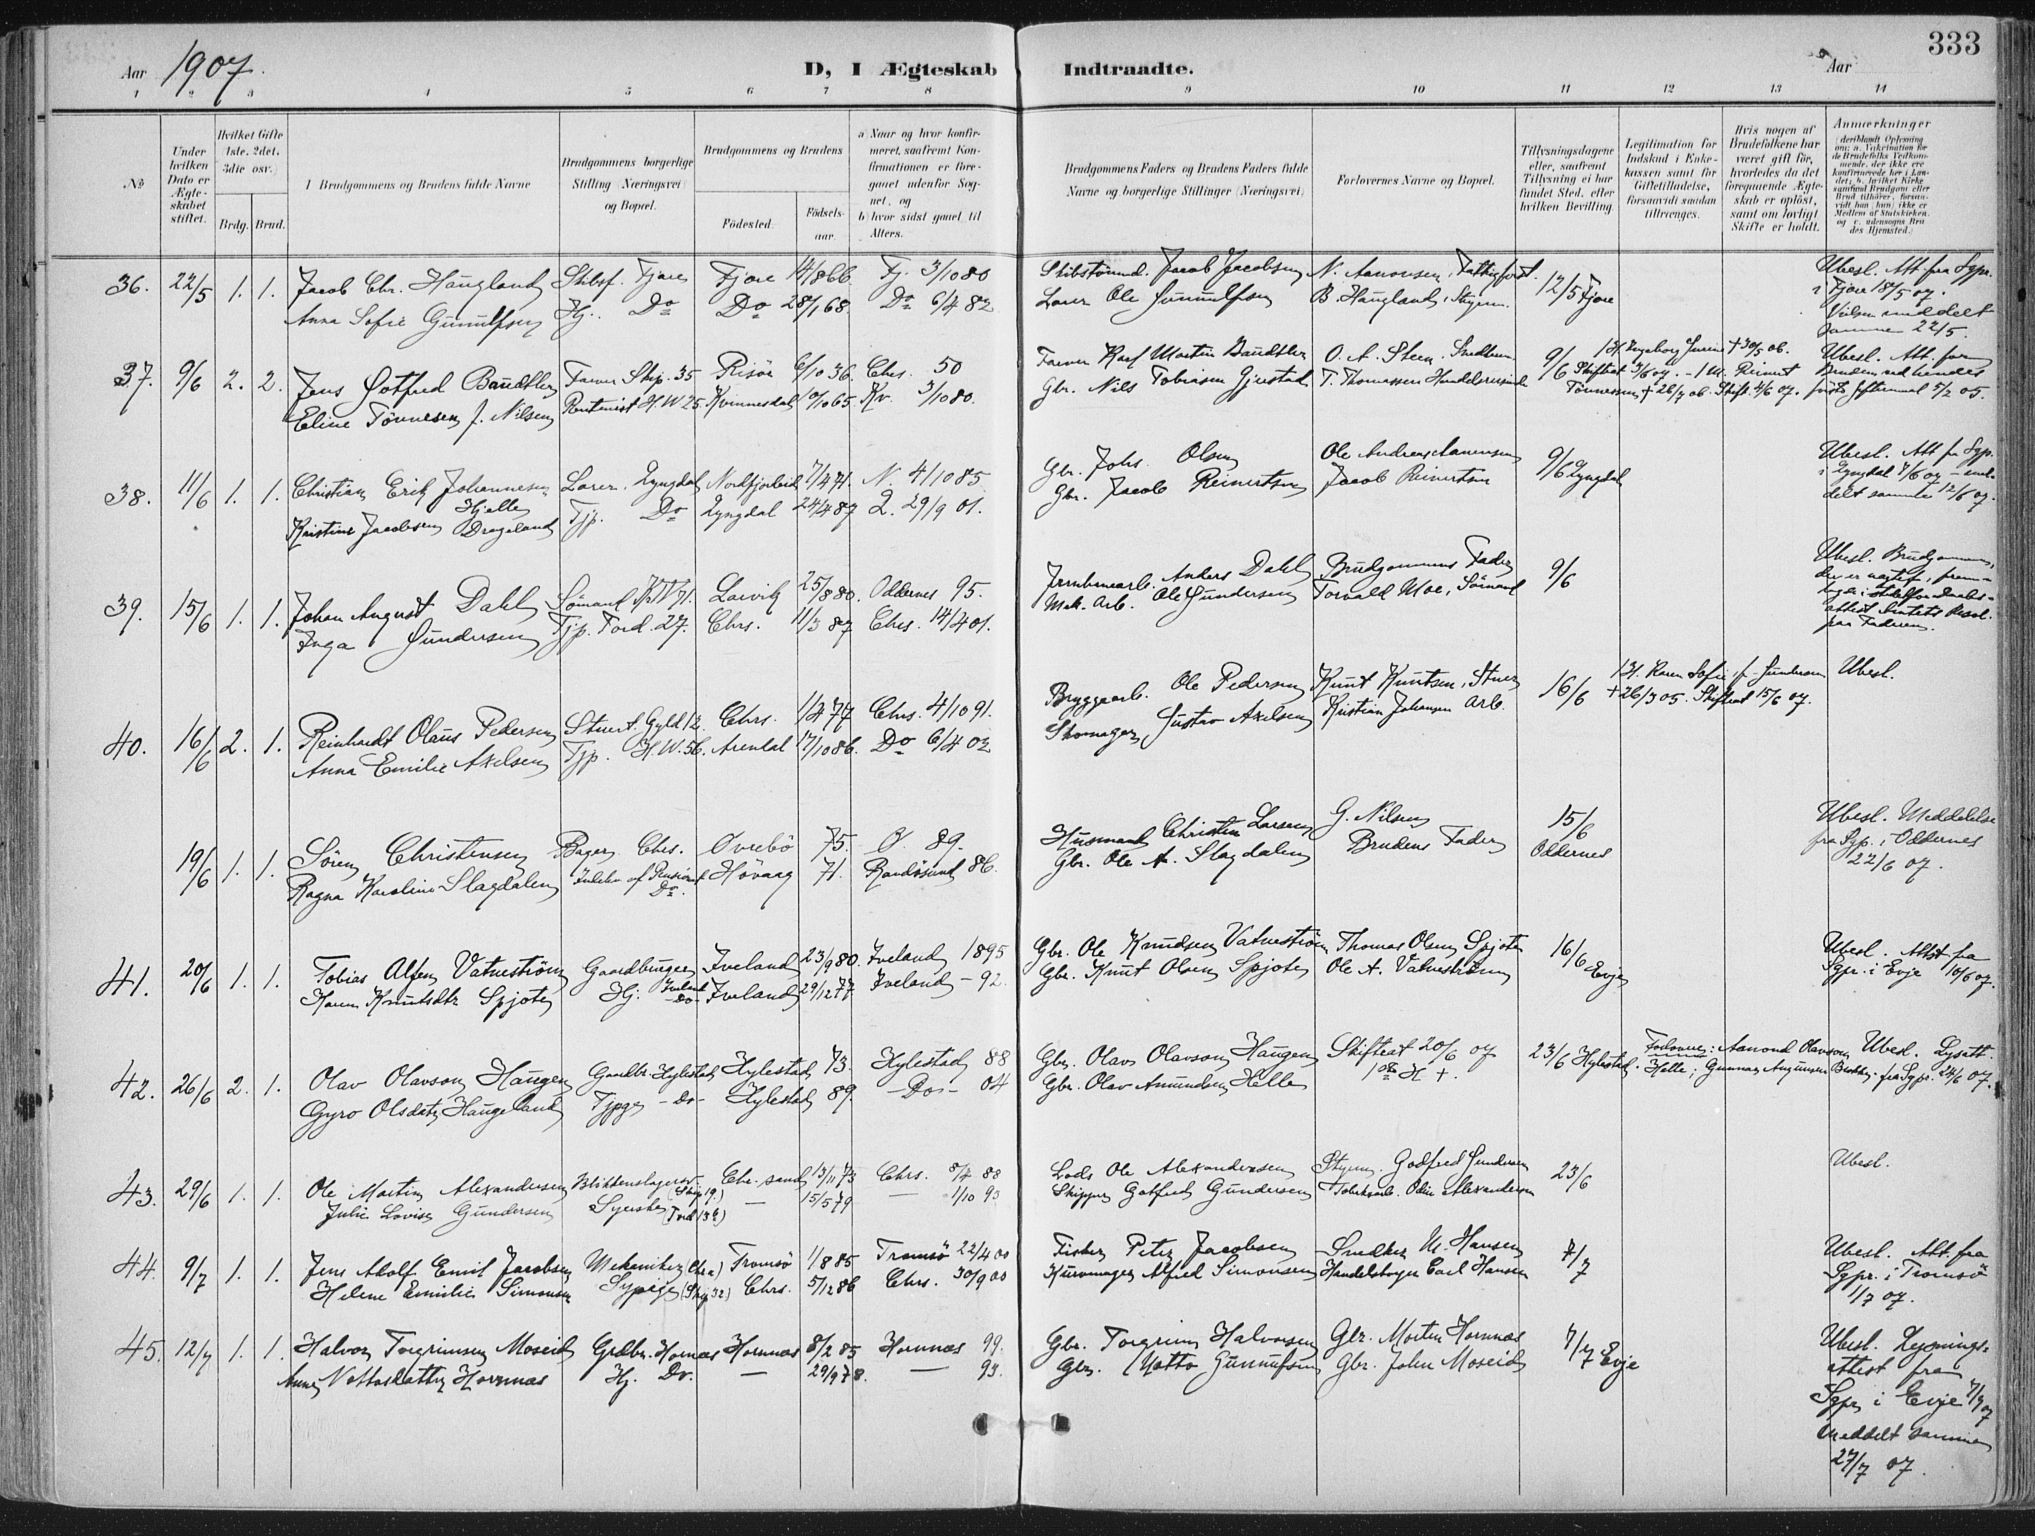 333
Aar 1907.
D, I Ægteskab Indtraadte.
Aar
1 2 3 4 5 6 7 8 9 10 11 12 13 14
No
Under hvilken Dato er Ægteskabet stiftet.
Hvilket Gifte 1ste. 2det. 3die osv.
Brdg. Brud.
1 Brudgommens og Brudens fulde Navne
Brudgommens borgerlige Stilling (Næringsvei) og Bopæl.
Brudgommens og Brudens
Födested.
Födselsaar.
a) Naar og hvor konfirmeret, saafremt Konfirmationen er foregaaet udenfor Sognet, og
b) hvor sidst gaaet til Alters.
Brudgommens Faders og Brudens Faders fulde Navne og borgerlige Stillinger (Næringsvei)
Forlovernes Navne og Bopæl.
Tillysningsdagene eller, saafremt Tillysning ei har fundet Sted, efter hvilken Bevilling.
Legitimation for Indskud i Enkekassen samt for Giftetilladelse, forsaavidt saadan tiltrænges.
Hvis nogen af Brudefolkene har været gift för, hvorledes da det foregaaende Ægteskab er oplöst, samt om lovligt Skifte er holdt.
Anmærkninger
36. 22/5 1. 1. Jacob Chr. Haugland Skibsf. Fjære Fjære 14/8 66 Fj. 3/10 80 Skibstömmd. Jacob Jacobsen N. Aanonsen, Fattigforst. 12/5 Fjære Ubesl. Att fra Sgpr.
Anna Sofie Gunulfsen Hj. Do Do 28/1 68 Do 6/4 82 Lærer Ole Gunnulfsen B. Haugland, Styrm. i Fjære 18/5 07.
Vielsen meddelt
samme 22/5.
37. 9/6 2. 2. Jens Gotfred Baudtler Farver Skip. 35 Risör 6/10 36. Chrs. 50 Farver Karl Martin Baudtler O. A. Steen. Snedkerm. 9/6 1 H. Ingeborg Jurine + 30/5 06. Ubesl. Att. for
Eline Tönnesen f. Nilsen Rentenist H. W 25. Kvinnesdal 10/10 65 Kv. 3/10 80. Gbr. Nils Tobiasen Gjerstad T. Thomassen Handelsreisende Skifteat 3/6 07. - 1 M. Reinert Bruden ved hendes
Tönnessen + 26/7 06. Skift. 4/6 07. förste Giftermaal 5/2 05.
38. 11/6 1. 1. Christian Erik Johannesen Lærer. Lyngdal Nordfjordeid 7/4 71. N. 4/10 85. Gbr. Johs. Olsen Ole Andreas Aanensen 9/6 Lyngdal Ubesl. Att fr Sgpr.
Hjelle i Lyngdal 7/6 07 - med-
Kristine Jacobsen Drageland Tjp. Do Lyngdal 24/4 87 L. 29/9 01. Gbr. Jacob Reinertsen Jacob Reinertsen delt samme 12/6 07.
39. 15/6 1. 1. Johan August Dahl Sömand K. IV 71. Larvik 25/8 80. Oddernes 95. Jernbanearb. Anders Dahl Brudgommens Fader 9/6 Ubesl. Brudgommen,
Inga Gundersen Tjp. Tord. 27. Chrs. 11/3 87 Chrs. 14/4 01. Mek. Arb. Ole Gundersen Torvald Moe, Sömand
paa Faderen.
40. 16/6 2. 1. Reinhardt Olaus Pedersen Stuert. Gyld 12. Chrs. 1/4 77 Chrs. 4/10 91. Bryggearb. Ole Pedersen Knut Knutsen, Stuer 16/6 1 H. Karen Sofie f. Gundersen Ubesl.
Anna Emilie Axelsen Tjp. H. W. 56. Arendal 17/10 86. Do 6/4 02 Skomager Gustav Axelsen Kristian Johansen Arb. + 26/3 05. Skifteat 15/6 07.
19/6 1. 1. Sören Christensen Bager Chrs. Övrebö 75. Ö. 89. Husmand Christen Larsen G. Nilsen 15/6 Ubesl. Meddelelse
Ragna Karoline Slagdalen Indeh. af Pensionat Hövaag 71. Randösund 86. Gbr. Ole A. Slagdalen Brudens Fader Oddernes fra Sgp. i Oddernes
Do. 22/6 07.
41. 20/6 1. 1. Tobias Olsen Vatneström Gaardbruger Iveland 23/9 80. Iveland 1895 Gbr. Ole Knudsen Vatneström Thomas Olsen Spjote 16/6 Ubesl. Attst fra
Karen Knutsdtr Spjote Hj. Iveland -Do- Iveland 29/12 77 Iveland - 92. Gbr. Knut Olsen Spjote Ole A. Vatneström Evje Sgpr. i Evje 10/6 07.
42. 26/6 2. 1. Olav Olavson Haugen Gaardbr. Hylestad Hylestad 73. Hylestad 88 Gbr. Olav Olavson Haugen Skifteat 20/6 07 23/6 Hylestad. Forlovere: Aamond Olavson Ubesl. Lysatt.
Gyro Olsdatr Haugeland Tjpge -Do- Hylestad 89. -Do- 04 Gbr. Olav Amundsen Helle 1ste H +. Helle; Gunnar fra Sgpr. 24/6 07.
43. 29/6 1. 1. Ole Martin Alexandersen Blikkenslager (Skip 19.) Chr.sand 13/11 73 Chrs. 8/4 88 Lods Ole Alexandersen Styrm. Godfred Gundersen 23/6 Ubesl.
Julie Lovise Gundersen Syerske (Tord 13b) — 15/5 79 — 1/10 93 Skipper Gotfred Gundersen Fabrikarb. Odin Alexandersen
44. 9/7 1. 1. Jens Adolf Emil Jacobsen Mekaniker (Chra) Tromsö 1/8 85 Tromsö 22/4 00 Fisker Peter Jacobsen Snedker M. Hansen 7/7 Ubesl. Att. fra
Helene Emilie Simonsen Sypige (Skip 32) Chrs. 5/12 86 Chrs. 30/9 00 Kurvmager Alfred Simonsen Handelsborger Carl Hansen Sgpr. i Tromsö
1/7 07.
45. 12/7 1. 1. Halvor Torgrimsen Moseid Grdbr. Hornæs Hornnæs 8/2 85 Hornnæs 99. Gbr. Torgrim Halvorsen Gbr. Morten Hornnæs 7/7 Evje Ubesl. Lysnings-
Anne Nottosdatter Hornnæs Hj. Do. — 29/9 78. — 93. Gbr. Notto Gunnufsen Gbr. John Moseid attest fra
Sgpr i Evje 7/7 07
Meddelt samme
27/7 07.